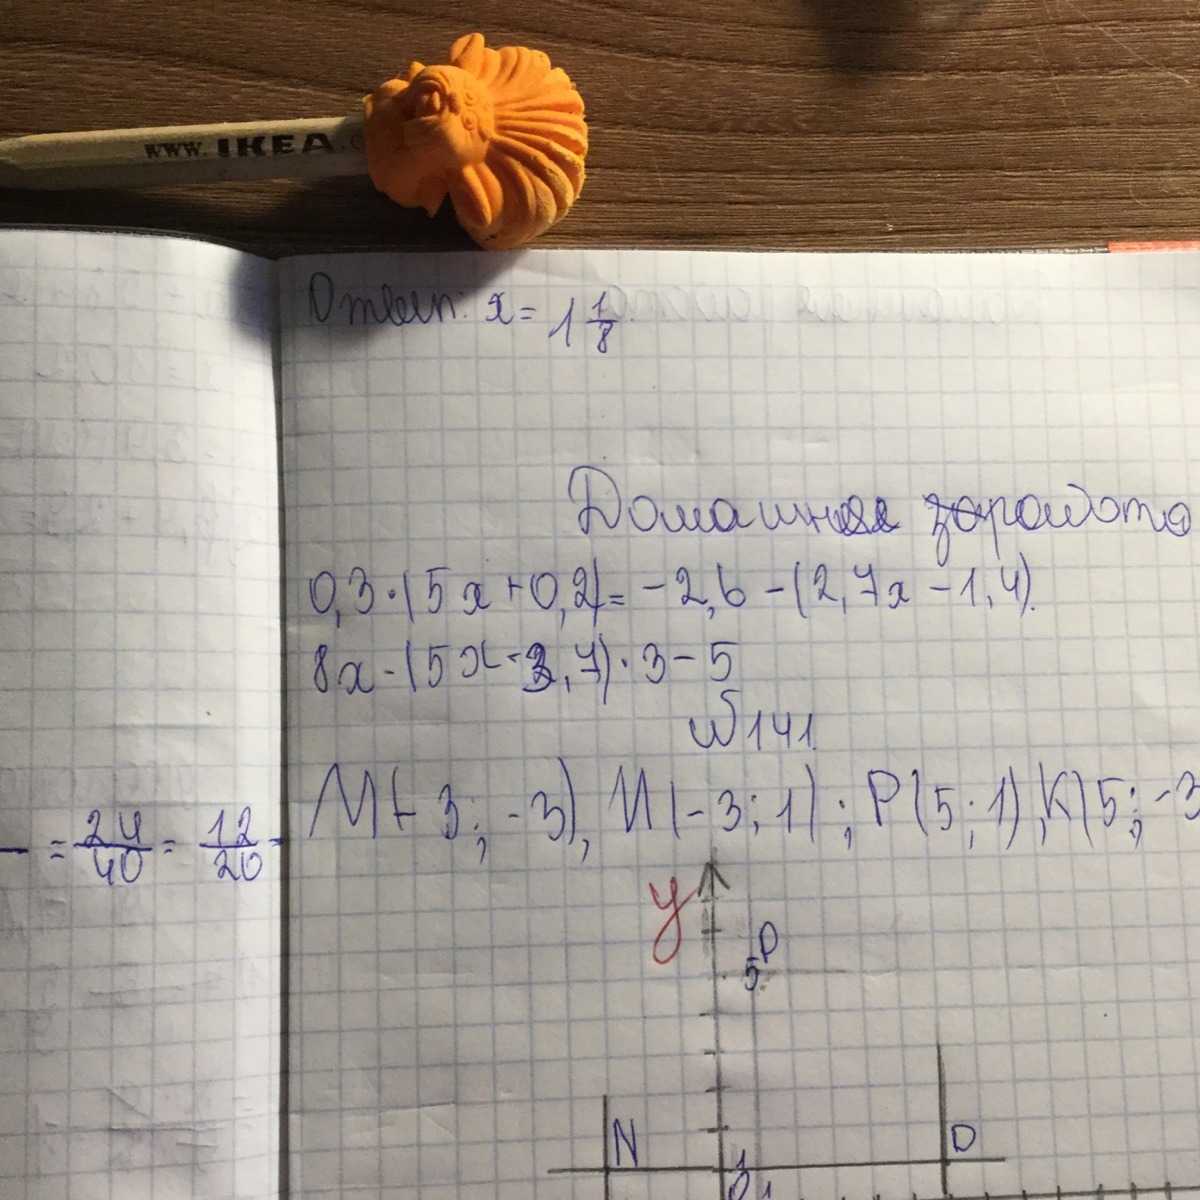 www.IKEA.c
Ответ: x = 1 1/8
Домашняя
0,3·(5x+0,2)=-2,6-(2,7x-1,4).
8x-(5x-3,7)·3-5
N141.
M(-3;-3), N(-3;1); P(5;1), K(5;-3
= 24/40 = 12/20 -
y
P
5
N
D
1
0 1